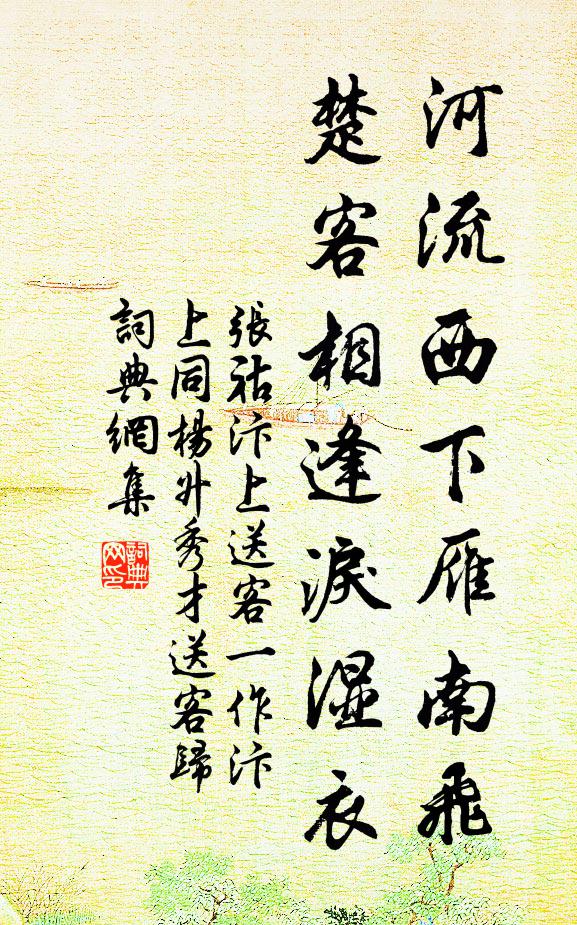 河流西下雁南飛
楚客相逢淚濕衣
張祜汴上送客一作汴
上同楊升秀才送客歸
詞典網集
詞典
网印